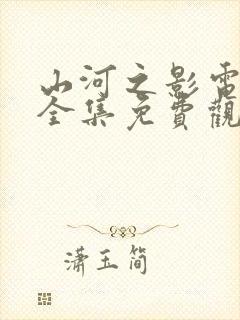 山河之影電
全集免費觀
潇玉简